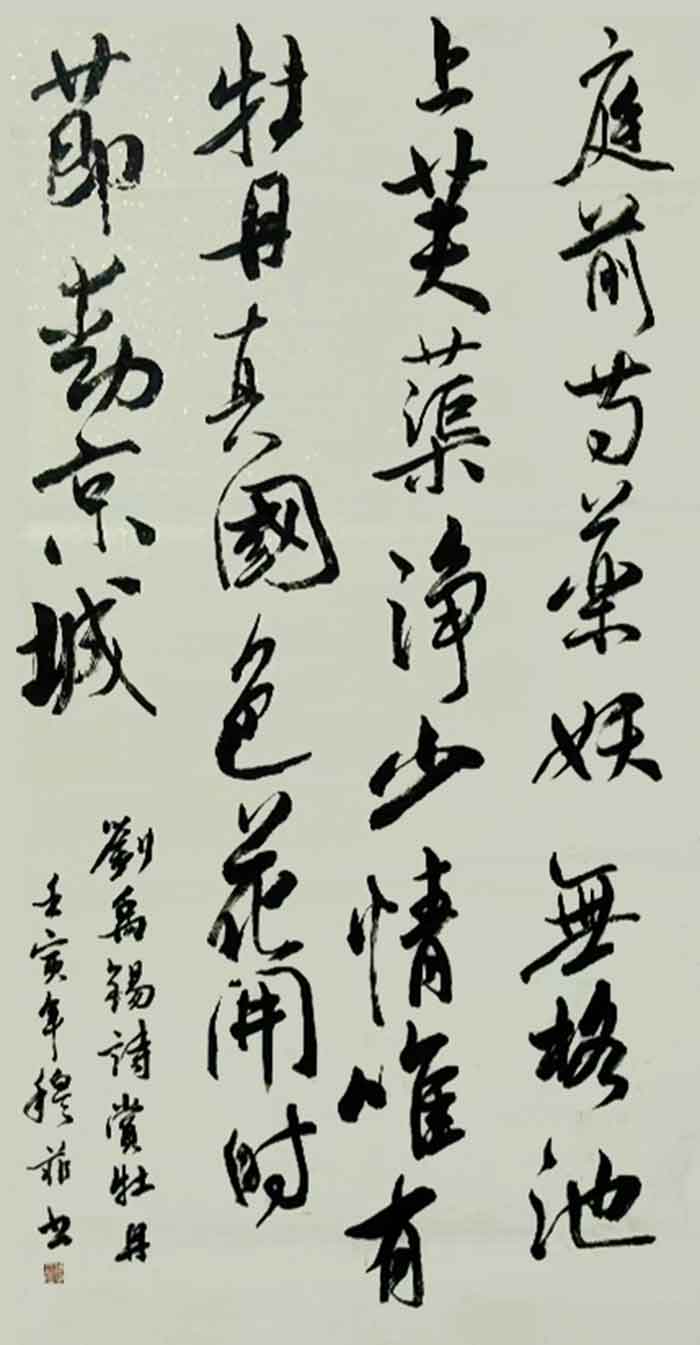 庭前芍藥妖無格池
上芙蕖淨少情唯有
牡丹真國色花開时
節動京城
劉禹錫詩賞牡丹
壬寅年穆菲书